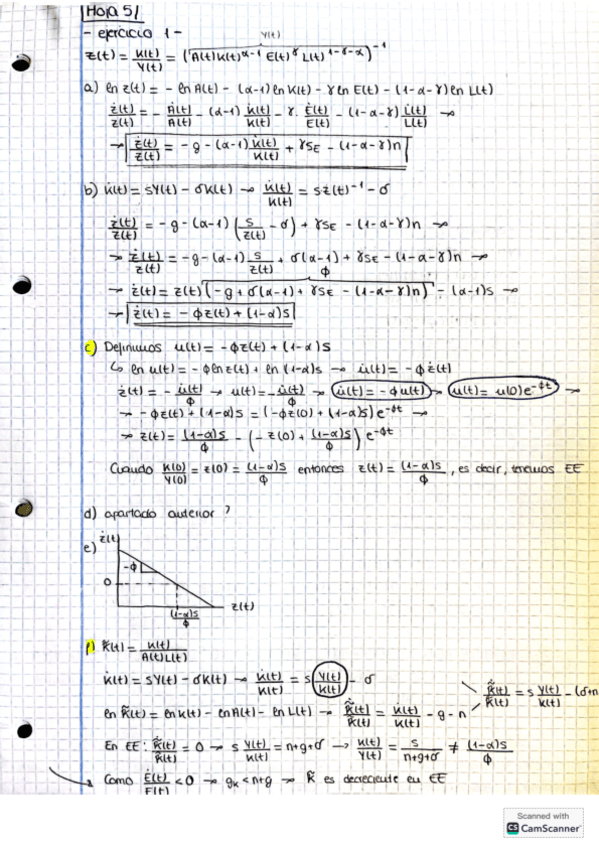 Hoja 5/
- ejercicio 1 -
Y(t)
z(t) = K(t)/Y(t) = (A(t)K(t)^α-1 E(t)^γ L(t)^1-γ-α)^-1
a) ln z(t) = - ln A(t) - (α-1) ln K(t) - γ ln E(t) - (1-α-γ) ln L(t)
ż(t)/z(t) = - Ȧ(t)/A(t) - (α-1) K̇(t)/K(t) - γ · Ė(t)/E(t) - (1-α-γ) L̇(t)/L(t) →
→ ż(t)/z(t) = -g - (α-1) K̇(t)/K(t) + γs_E - (1-α-γ)n
b) K̇(t) = sY(t) - σK(t) → K̇(t)/K(t) = sz(t)^-1 - σ
ż(t)/z(t) = -g - (α-1) (s/z(t) - σ) + γs_E - (1-α-γ)n →
→ ż(t)/z(t) = -g - (α-1) s/z(t) + σ(α-1) + γs_E - (1-α-γ)n →
ϕ
→ ż(t) = z(t) (-g + σ(α-1) + γs_E - (1-α-γ)n) - (α-1)s →
→ ż(t) = -ϕz(t) + (1-α)s
c) Definimos u(t) = -ϕz(t) + (1-α)s
↳ ln u(t) = -ϕ ln z(t) + ln (1-α)s → u̇(t) = -ϕ ż(t)
ż(t) = - u̇(t)/ϕ → u(t) = - u̇(t)/ϕ → u̇(t) = -ϕu(t) → u(t) = u(0)e^-ϕt →
→ -ϕz(t) + (1-α)s = (-ϕz(0) + (1-α)s) e^-ϕt →
→ z(t) = (1-α)s/ϕ - (-z(0) + (1-α)s/ϕ) e^-ϕt
Cuando K(0)/Y(0) = z(0) = (1-α)s/ϕ entonces z(t) = (1-α)s/ϕ, es decir, tenemos EE
d) apartado anterior ?
e) ż(t)
-ϕ
0
z(t)
(1-α)s/ϕ
f) k̃(t) = K(t)/A(t)L(t)
K̇(t) = sY(t) - σK(t) → K̇(t)/K(t) = s Y(t)/K(t) - σ
ln k̃(t) = ln K(t) - ln A(t) - ln L(t) → k̃̇(t)/k̃(t) = K̇(t)/K(t) - g - n
k̃̇(t)/k̃(t) = s Y(t)/K(t) - (σ+n
En EE: k̃̇(t)/k̃(t) = 0 → s Y(t)/K(t) = n+g+σ → K(t)/Y(t) = s/n+g+σ ≠ (1-α)s/ϕ
Como Ė(t)/E(t) < 0 → g_K < n+g → k̃ es decreciente en EE
Scanned with
CS CamScanner